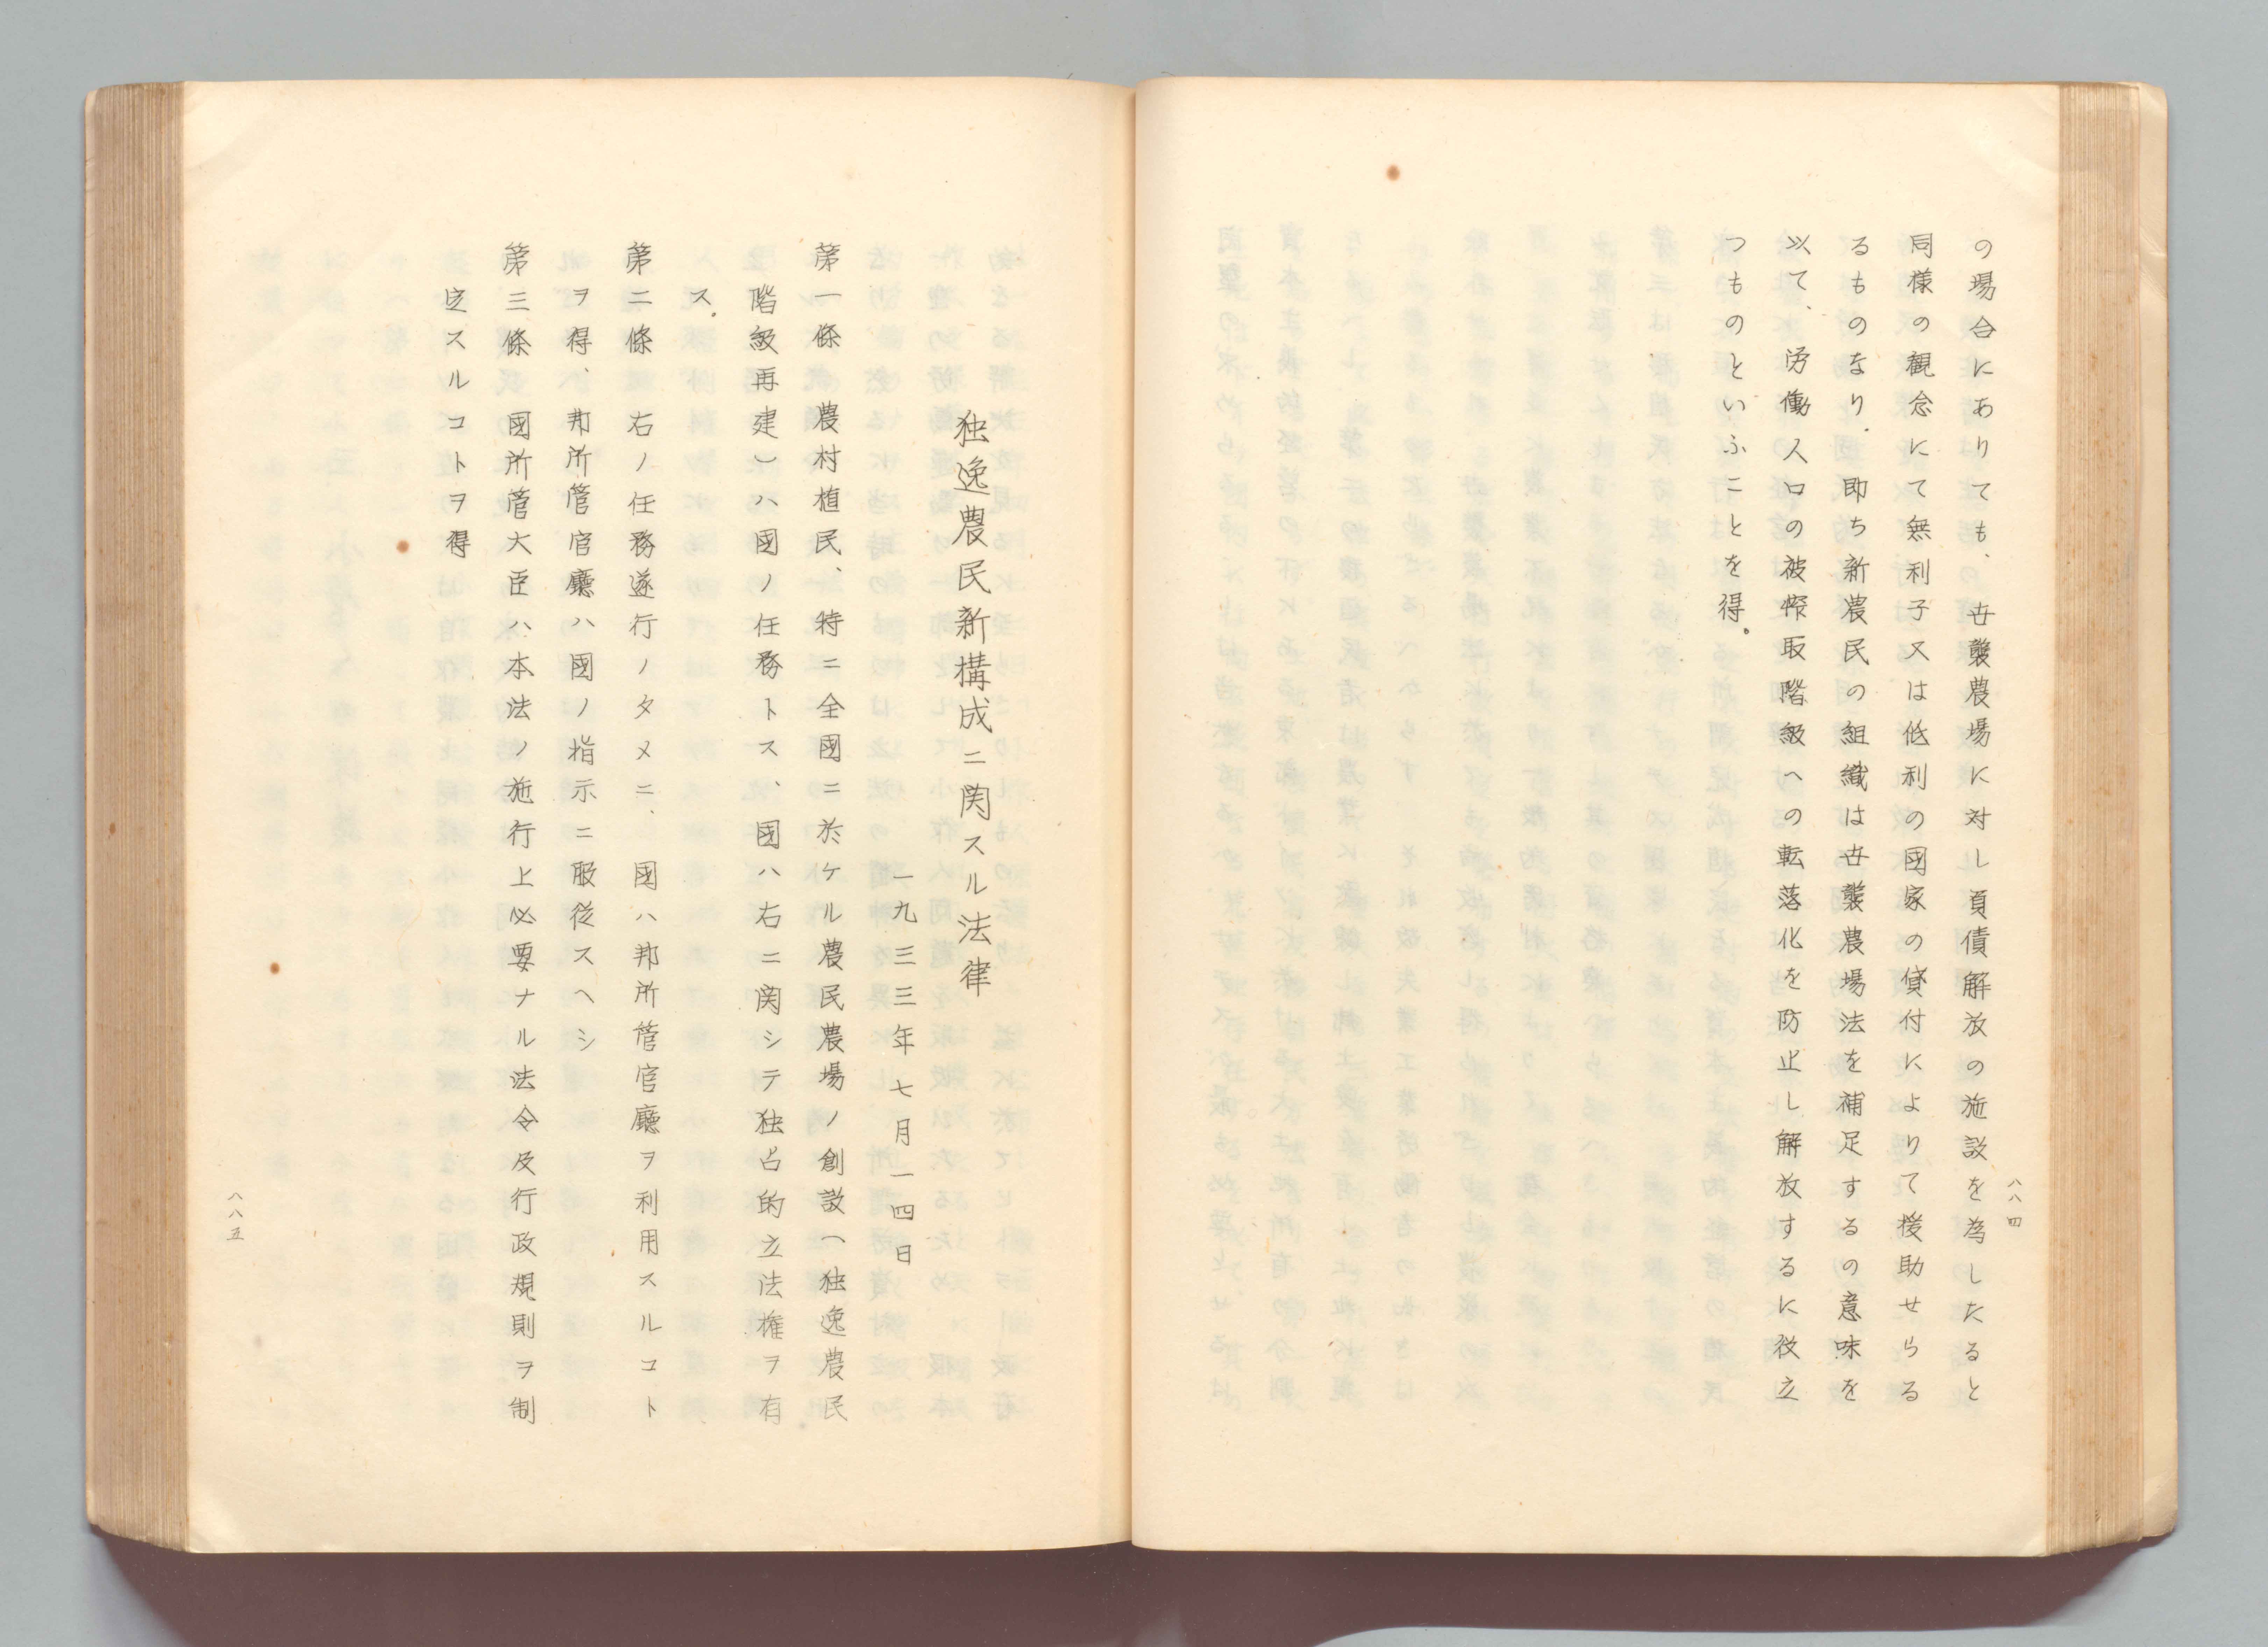 の場合にありても、世襲農場に対し負債解放の施設を為したると
同様の観念にて無利子又は低利の國家の貸付によりて援助せらる
るものなり。即ち新農民の組織は世襲農場法を補足するの意味を
以て、労働人口の被搾取階級への転落化を防止し解放するに役立
つものといふことを得。
八八四
独逸農民新構成ニ関スル法律
一九三三年七月一四日
第一條 農村植民、特ニ全國ニ於ケル農民農場ノ創設(独逸農民
階級再建)ハ國ノ任務トス、國ハ右ニ関シテ独占的立法権ヲ有
ス。
第二條 右ノ任務遂行ノタメニ、國ハ邦所管官廳ヲ利用スルコト
ヲ得、邦所管官廳ハ國ノ指示ニ服従スヘシ
第三條 國所管大臣ハ本法ノ施行上必要ナル法令及行政規則ヲ制
定スルコトヲ得
八八五